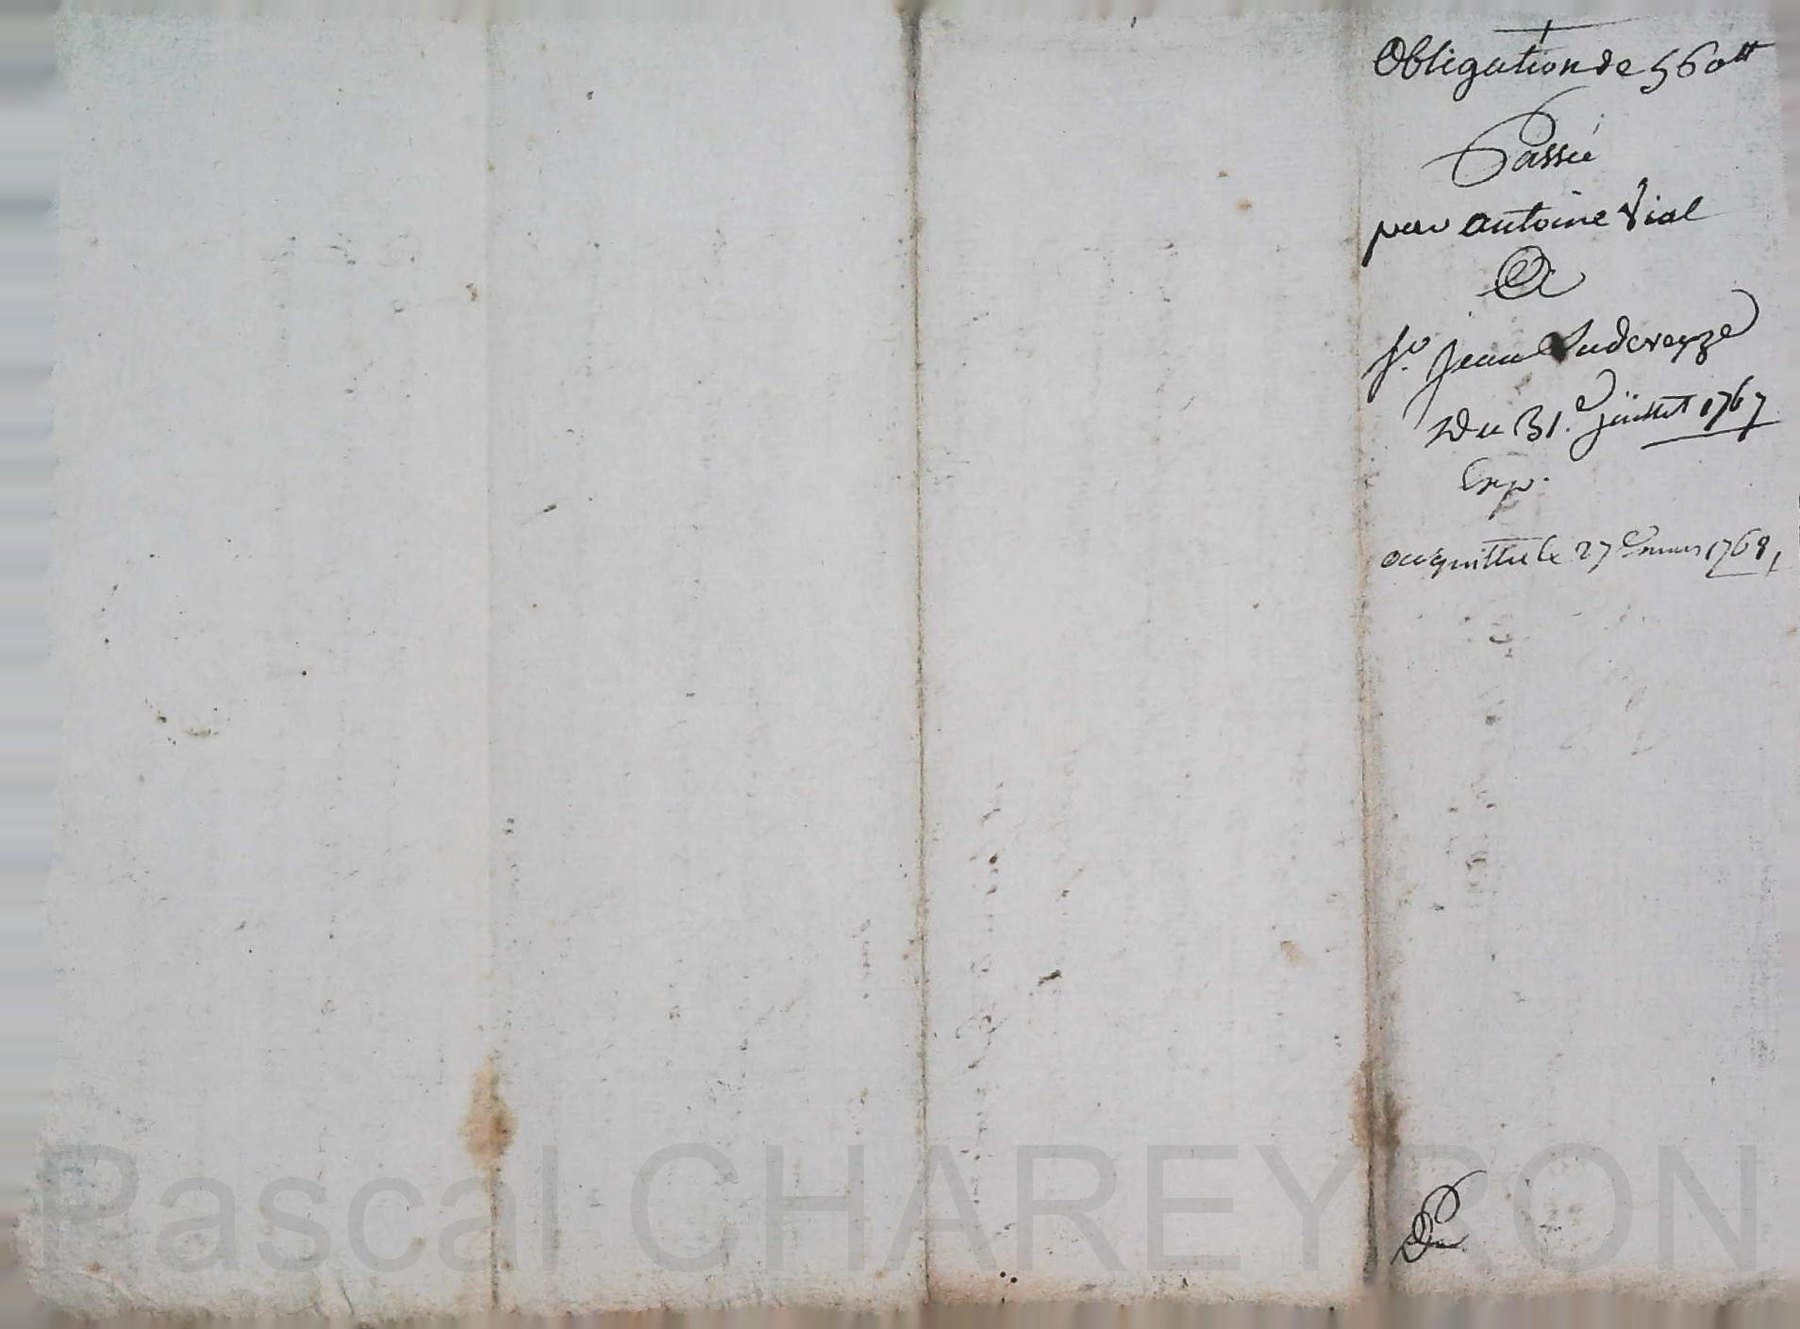 Obligation de 560tt
Passée
par antoine Vial
A
Sr. Jean
Du 31.e juillet 1767
Exp.
acquittée le 27e mars 1768
Pascal CHAREYRON